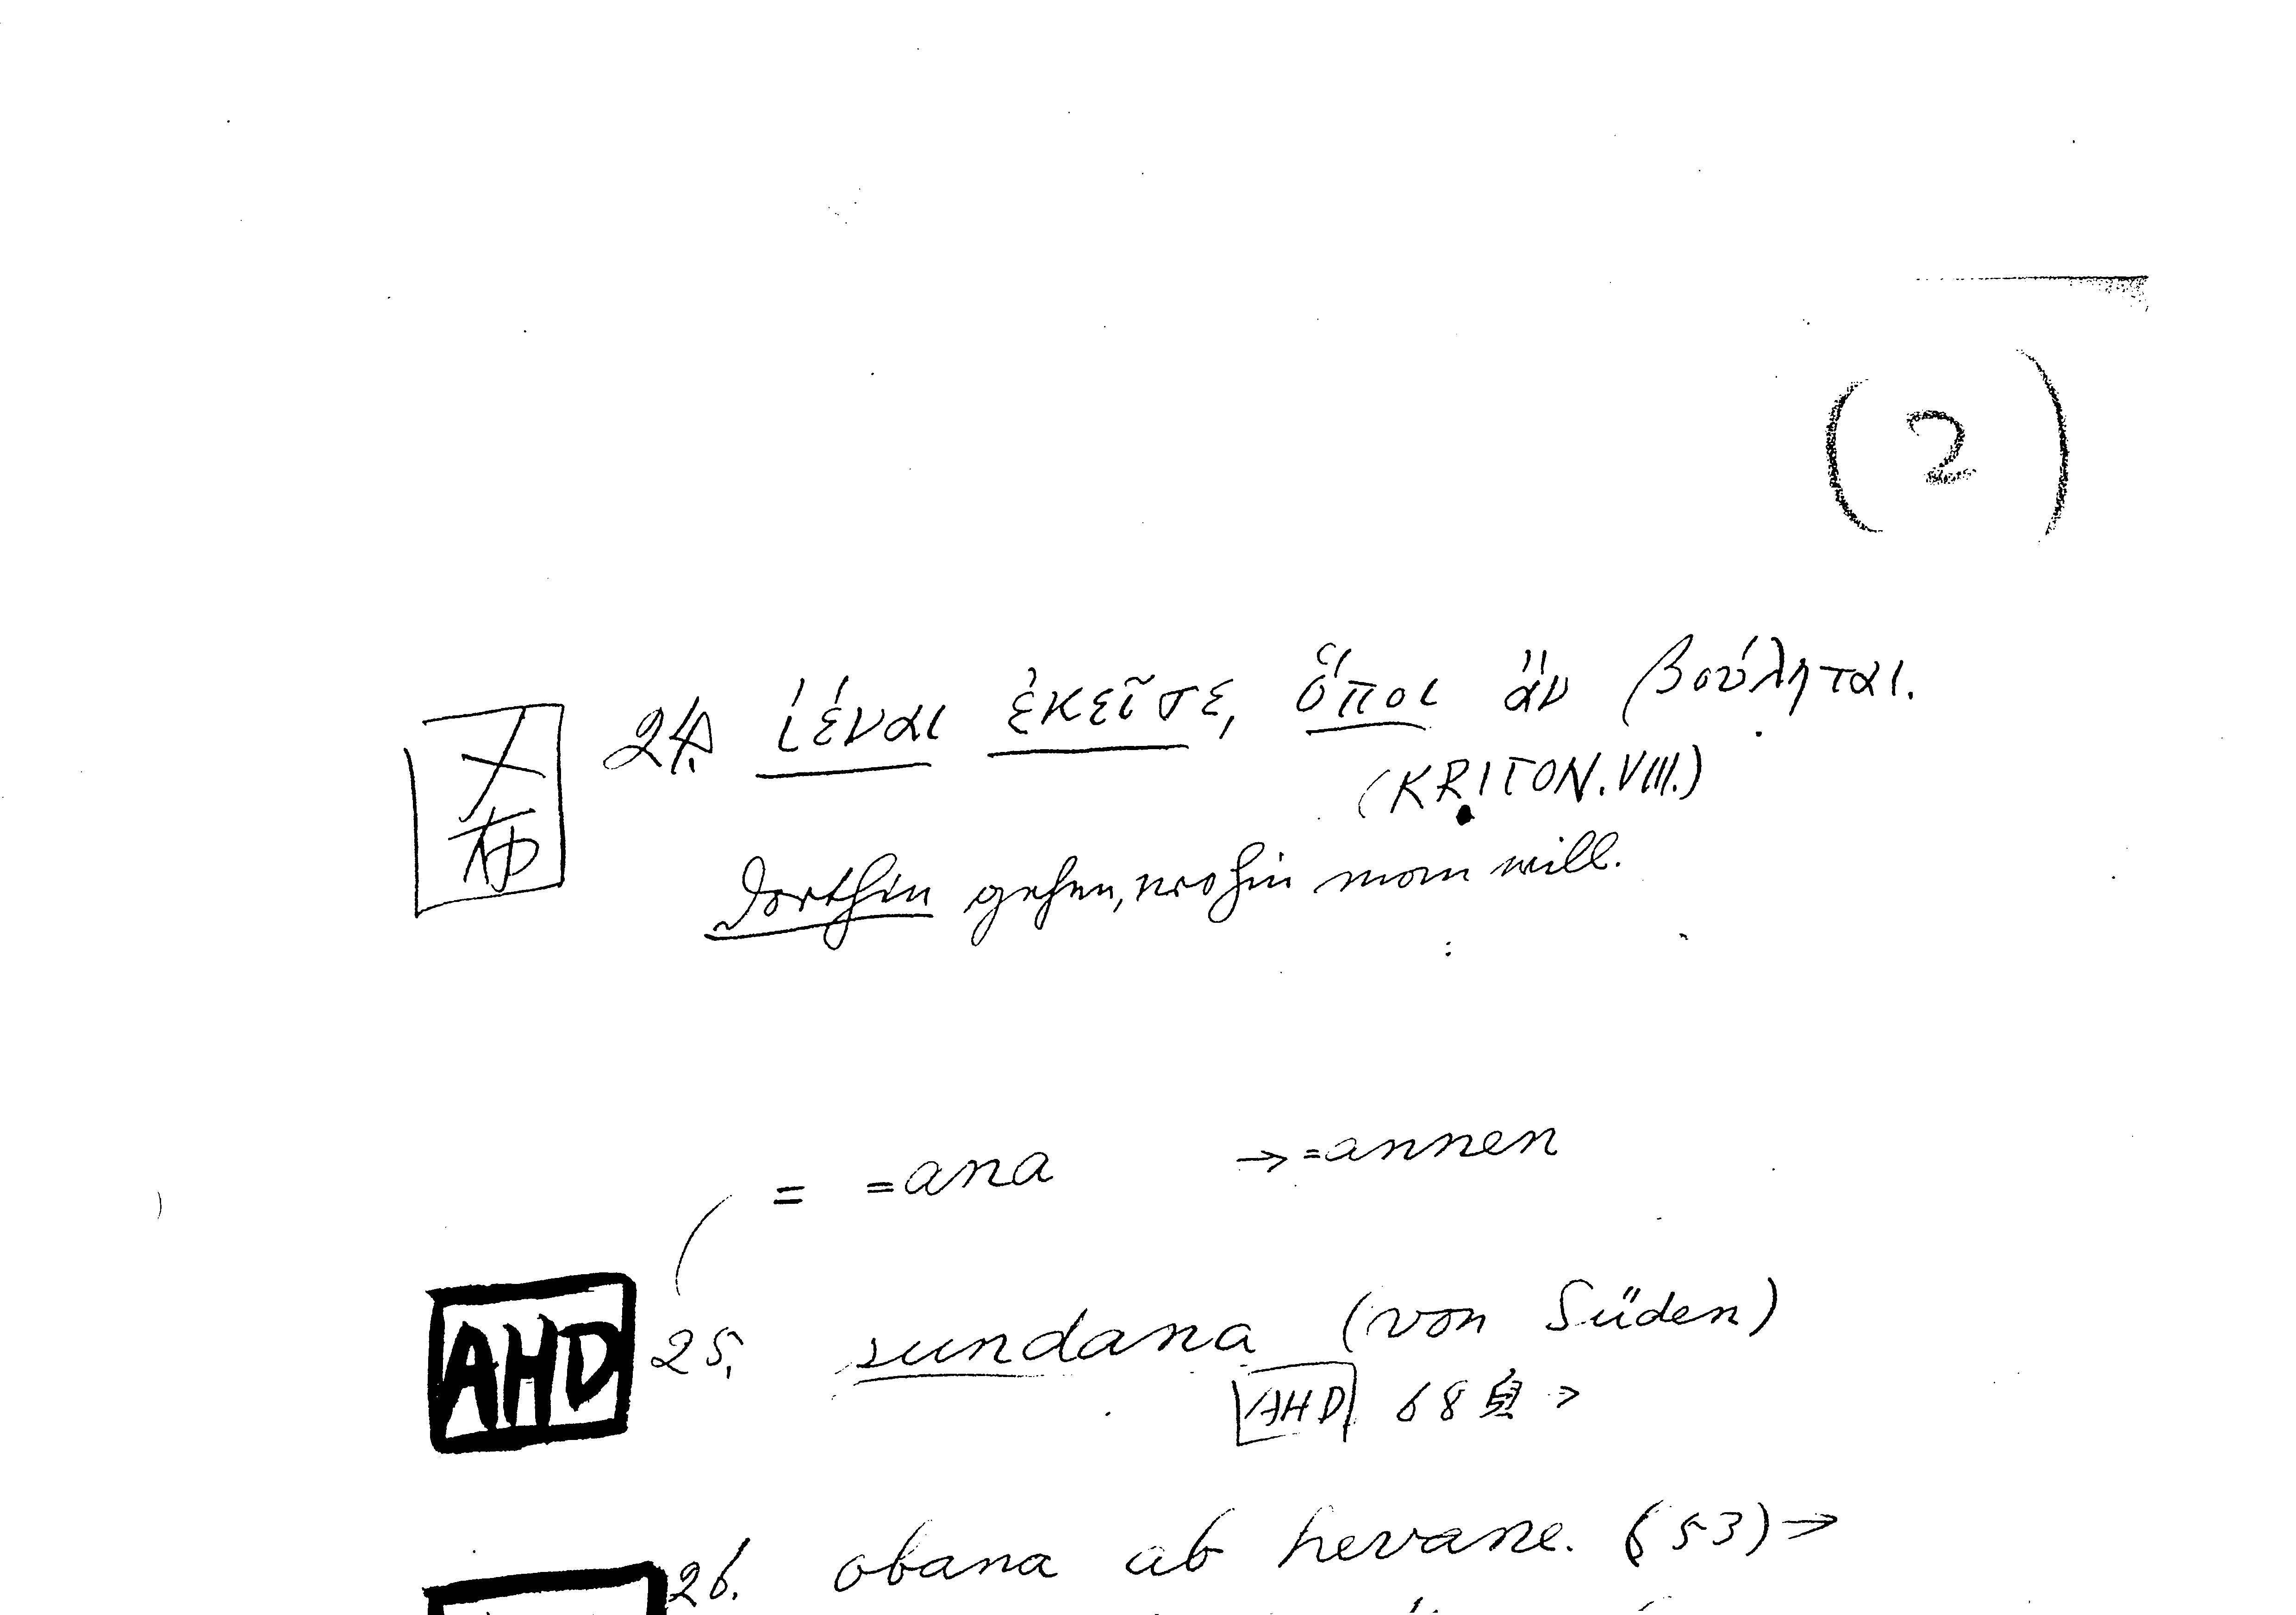 (2)
24. ἰέναι ἐκεῖσε, ὅποι ἄν βούληται.
(KRITON. VIII.)
dorthin gehen, wohin man will.
= =ana → =annen
AHD 25. sundana (von Süden)
AHD 68頁 →
26. obana ab hevane. (53) →